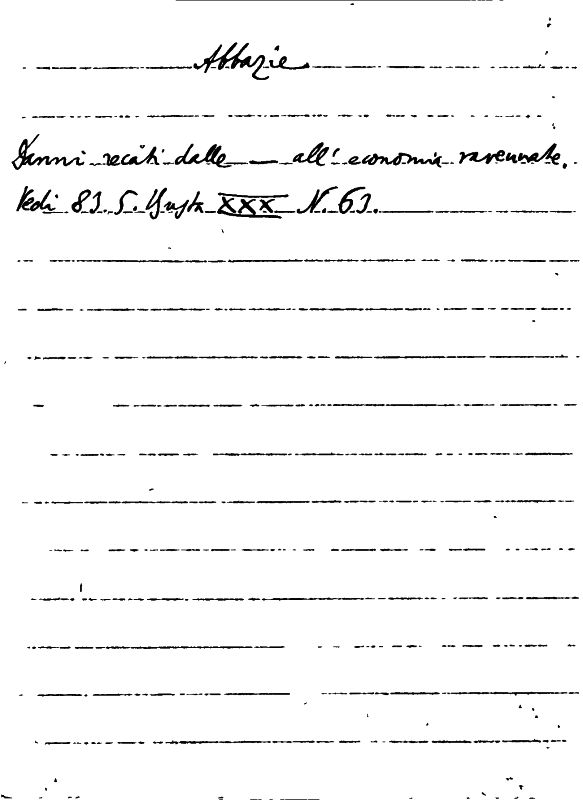 Abbazie
Danni recati dalle — all' economia ravennate.
Vedi 83. 5. Busta XXX N. 63.